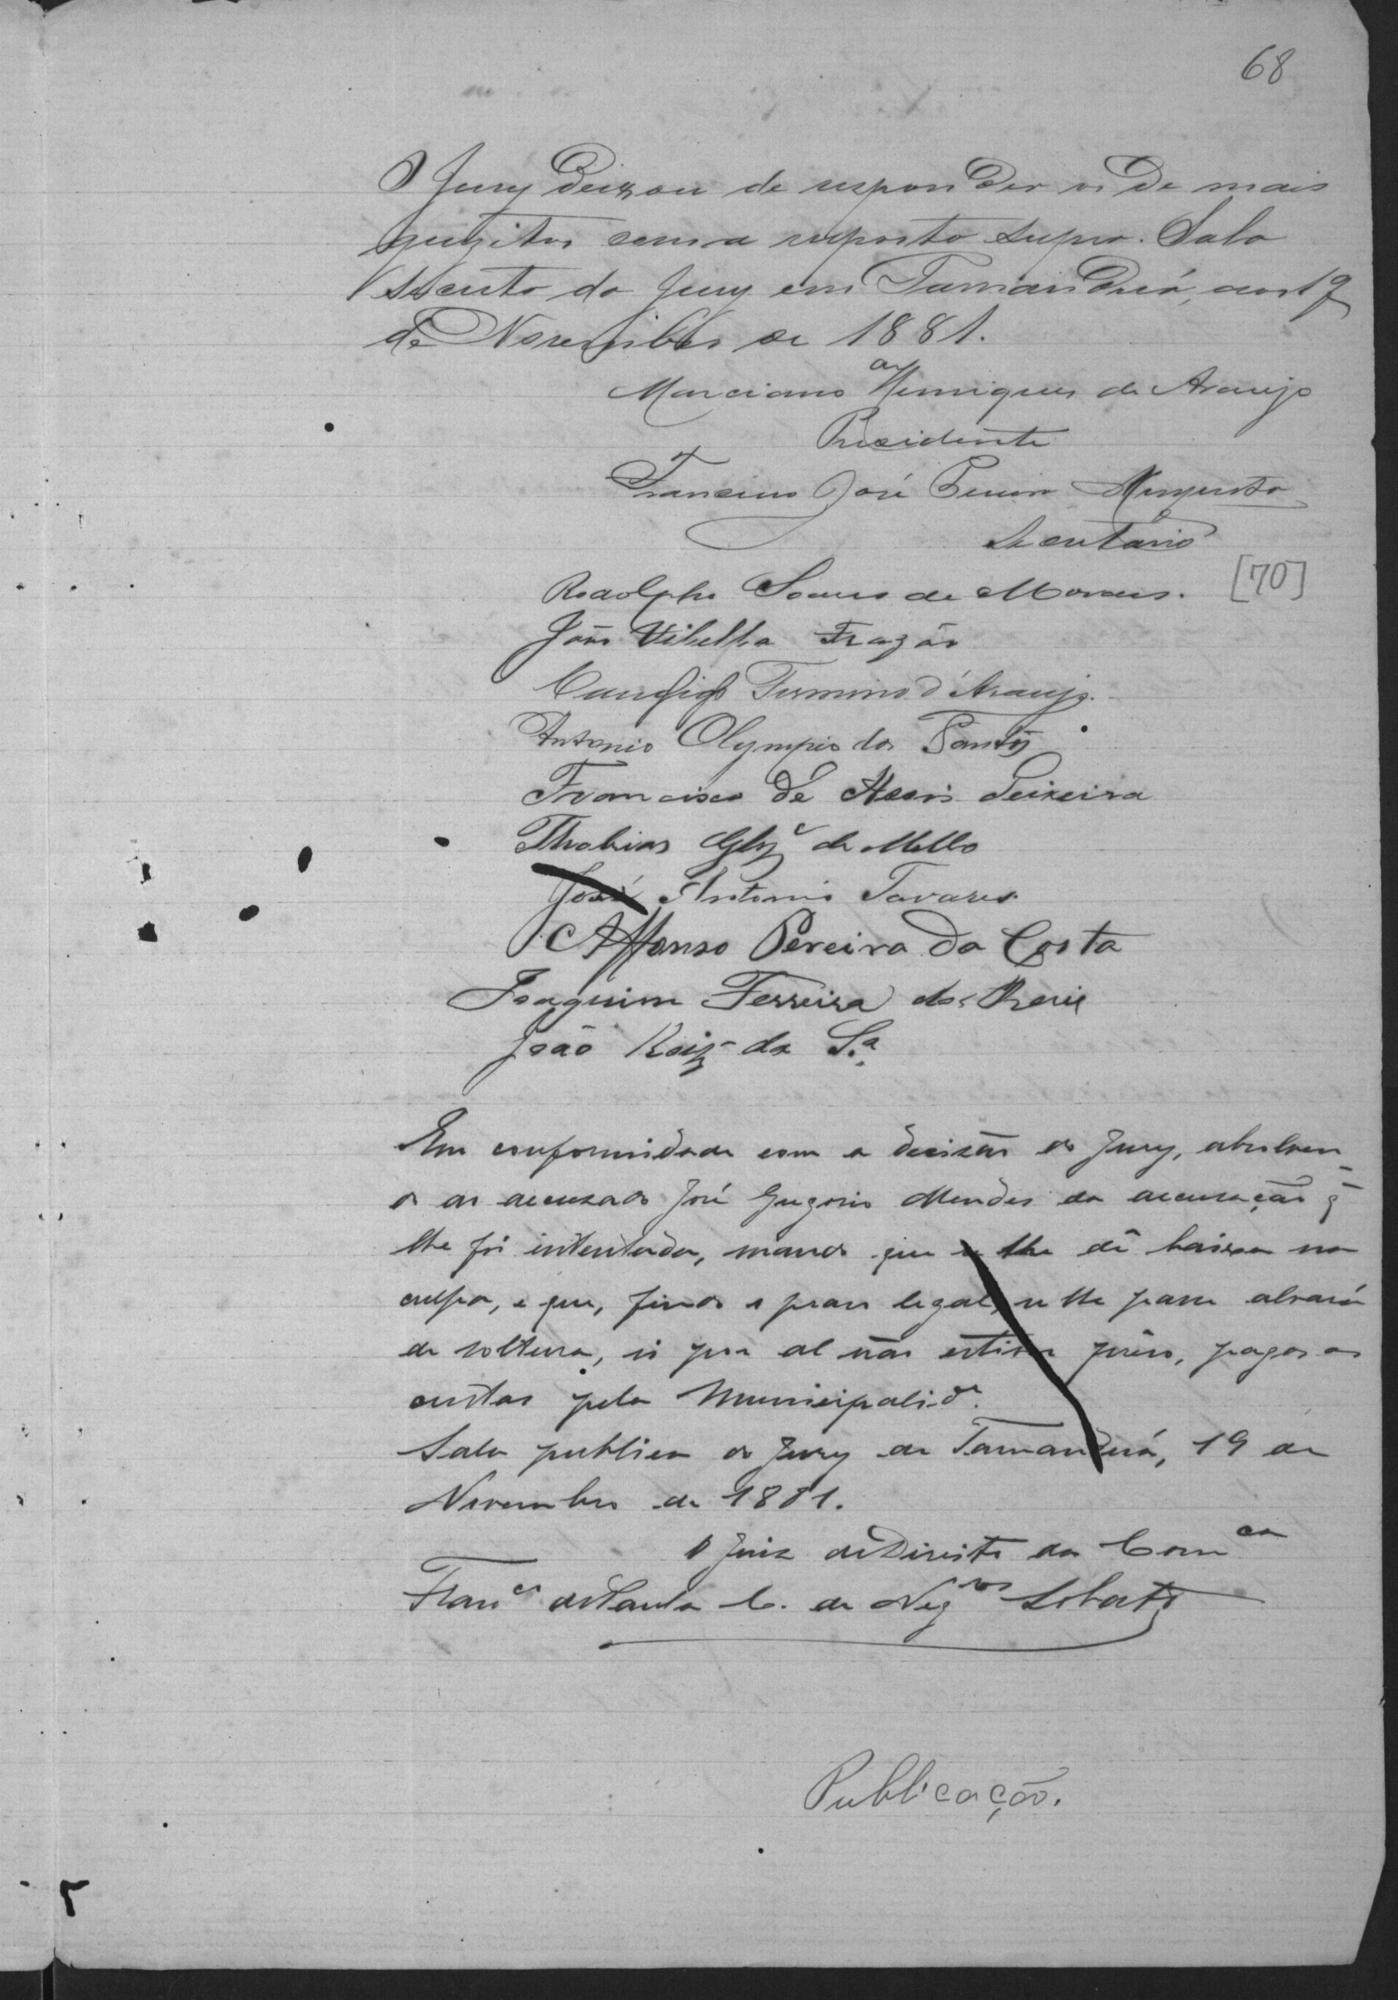 68
O Jury deixou de responder os de mais
quizitos em a resposta supra. Sala
secreta do Jury em Tamanduá, aos 19
de Novembro de 1881.
Marciano Henriques de Araujo
Presidente
Francisco José
Secretario
[70]
Rodolpho Soares de Moraes.
João Vilella Frazão
Candido Firmino d'Araujo.
Antonio Olympio dos Santos
Francisco de Assis Teixeira
Thobias Glz de Mello
José Antonio Tavares
Affonso Pereira da Costa
Joaquim Ferreira dos Reis
João Roiz da Sa
Em conformidade com a decisão do Jury, absolven
do ao accuzado José Gregorio Mendes da accusação q
lhe foi intentada, mando que se lhe dê baixa na
culpa, e que, findo o praso legal, se lhe passe alvará
de soltura, si por al não estiver prêso, pagas as
custas pela Municipalide.
Sala publica do Jury de Tamanduá, 19 de
Novembro de 1881.
O Juiz de Direito da Comca
Franco de Paula C. de Negros Lobato
Publicação.